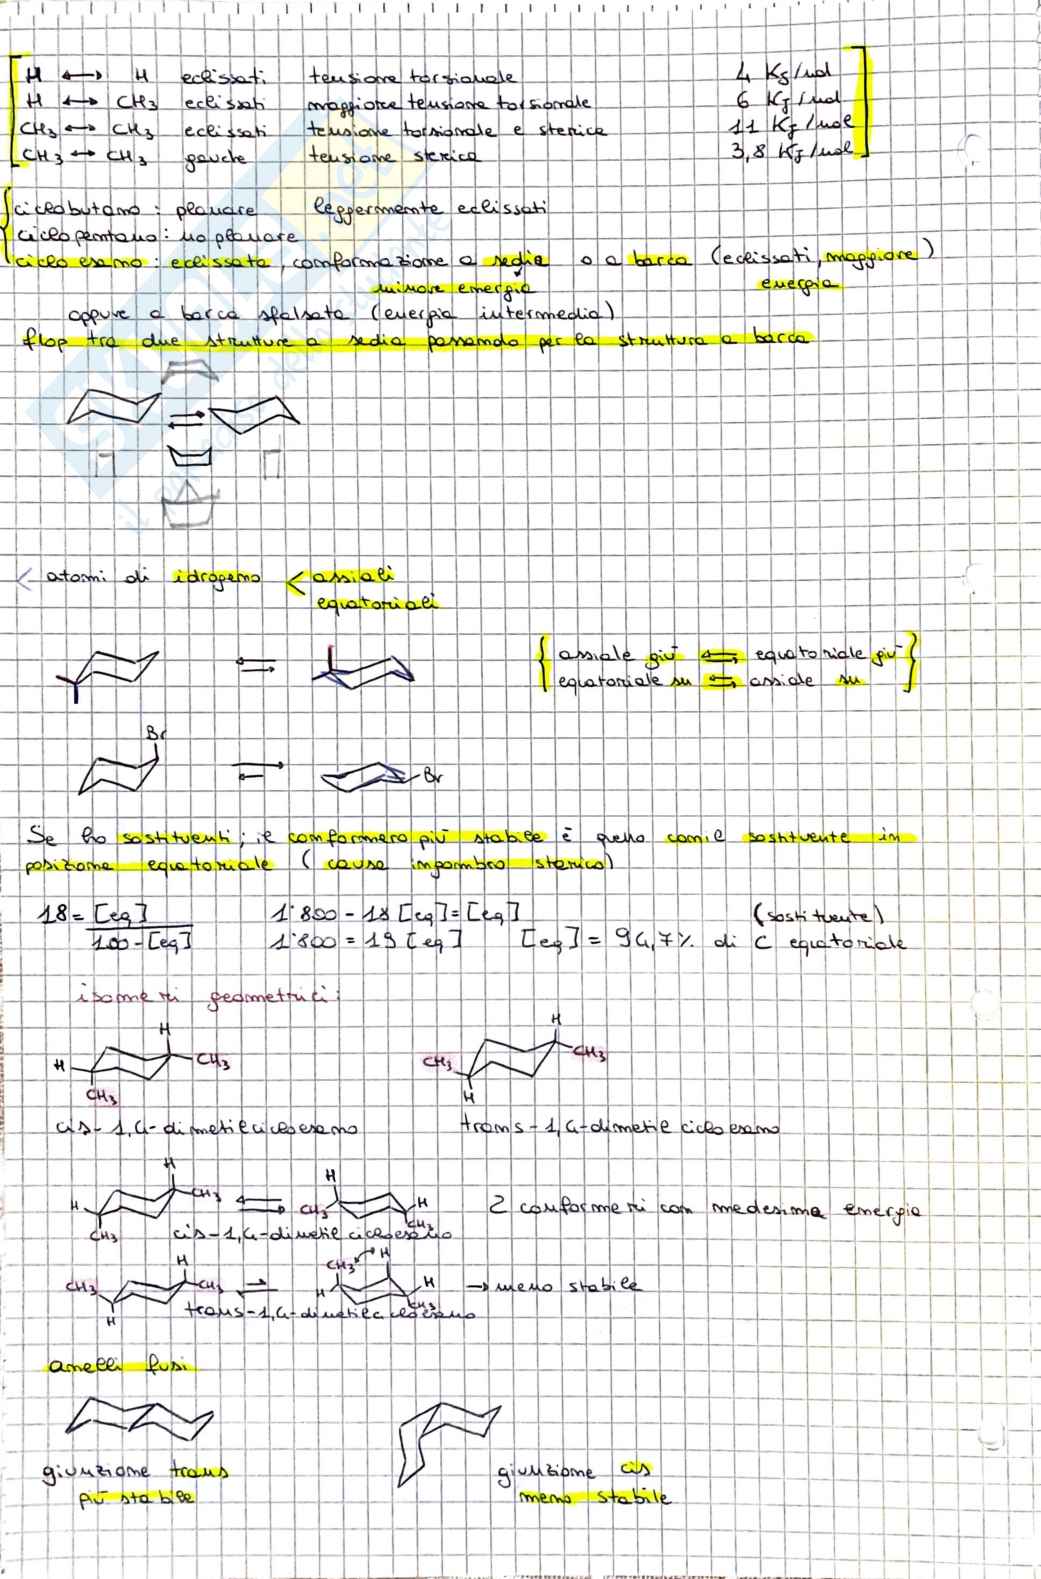 H ↔ H eclissati tensione torsionale 4 KJ/mol
H ↔ CH3 eclissati maggiore tensione torsionale 6 KJ/mol
CH3 ↔ CH3 eclissati tensione torsionale e sterica 11 KJ/mol
CH3 ↔ CH3 gauche tensione sterica 3,8 KJ/mol
ciclobutano: planare leggermente eclissati
ciclopentano: no planare
cicloesano: eclissata, conformazione a sedia o a barca (eclissati, maggiore)
minore energia energia
oppure a barca sfalsata (energia intermedia)
flop tra due strutture a sedia passando per la struttura a barca
atomi di idrogeno < assiali
equatoriali
assiale giù ⇆ equatoriale giù
equatoriale su ⇆ assiale su
Br
Br
Se ho sostituenti; il conformero più stabile è quello con il sostituente in
posizione equatoriale (causa ingombro sterico)
18 = [eq] 1'800 - 18 [eq] = [eq] (sostituente)
100 - [eq] 1'800 = 19 [eq] [eq] = 94,7% di C equatoriale
isomeri geometrici:
H H
H CH3 CH3 CH3
CH3 H
cis-1,4-dimetilcicloesano trans-1,4-dimetilcicloesano
H H
H CH3 CH3 H 2 conformeri con medesima energia
CH3 CH3
cis-1,4-dimetilcicloesano
H CH3 H
CH3 CH3 H H → meno stabile
H CH3
trans-1,4-dimetilcicloesano
anelli fusi
giunzione trans giunzione cis
più stabile meno stabile